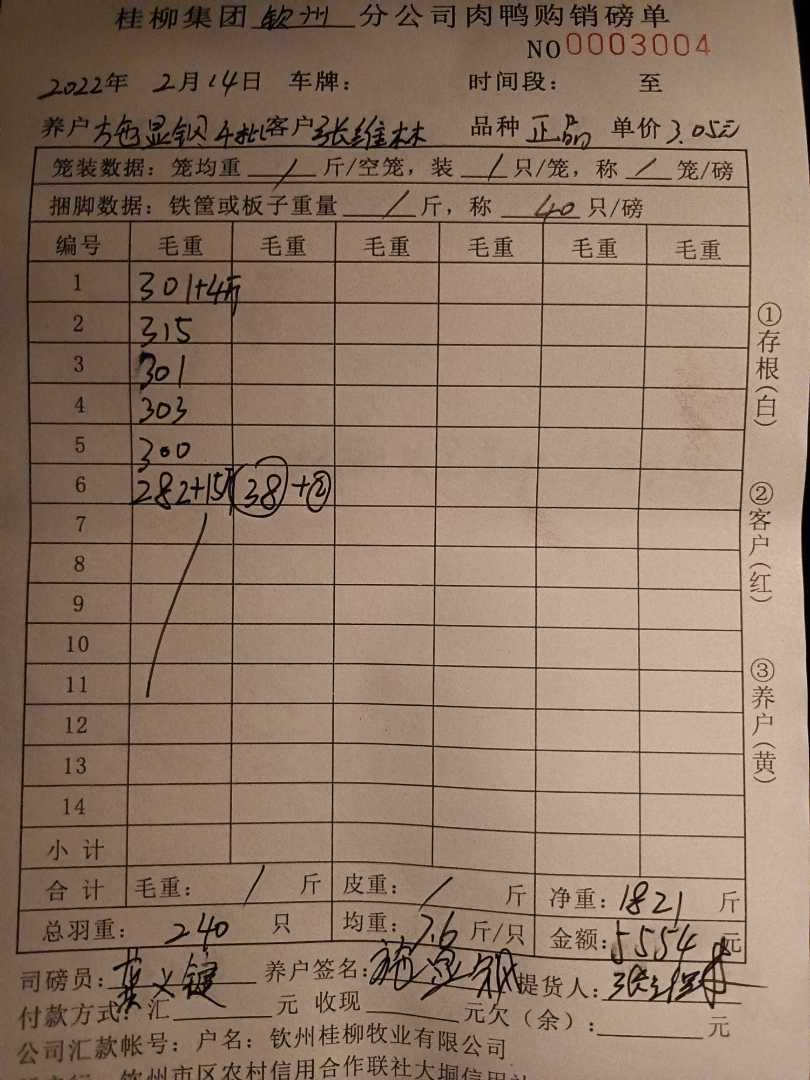 桂柳集团 钦州 分公司肉鸭购销磅单
NO 0003004
2022年 2月14日 车牌： 时间段： 至
养户 显钡 客户 张维林 品种 正品 单价 3.05元
笼装数据：笼均重 / 斤/空笼，装 / 只/笼，称 / 笼/磅
捆脚数据：铁筐或板子重量 / 斤，称 40 只/磅
编号 毛重 毛重 毛重 毛重 毛重 毛重
1 301+4斤
2 315
3 301
4 303
5 300
6 282+15斤 38+②
7
8
9
10
11
12
13
14
小计
合计 毛重： / 斤 皮重： / 斤 净重：1821 斤
总羽重： 240 只 均重：7.6 斤/只 金额：5554 元
司磅员： 养户签名： 提货人：张维林
付款方式：汇 元 收现 元欠（余）： 元
公司汇款帐号：户名：钦州桂柳牧业有限公司
钦州市区农村信用合作联社大垌信用社
①存根(白)
②客户(红)
③养户(黄)